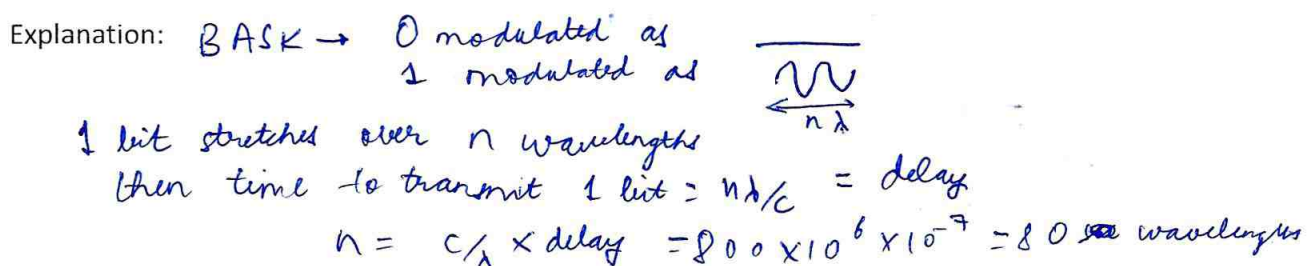 Explanation: BASK → 0 modulated as
1 modulated as
nλ
1 bit stretches over n wavelengths
then time to transmit 1 bit = nλ/c = delay
n = c/λ × delay = 800 × 10⁶ × 10⁻⁷ = 80 wavelengths